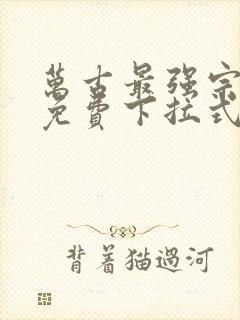 萬古最強宗
免費下拉式
背着猫過河